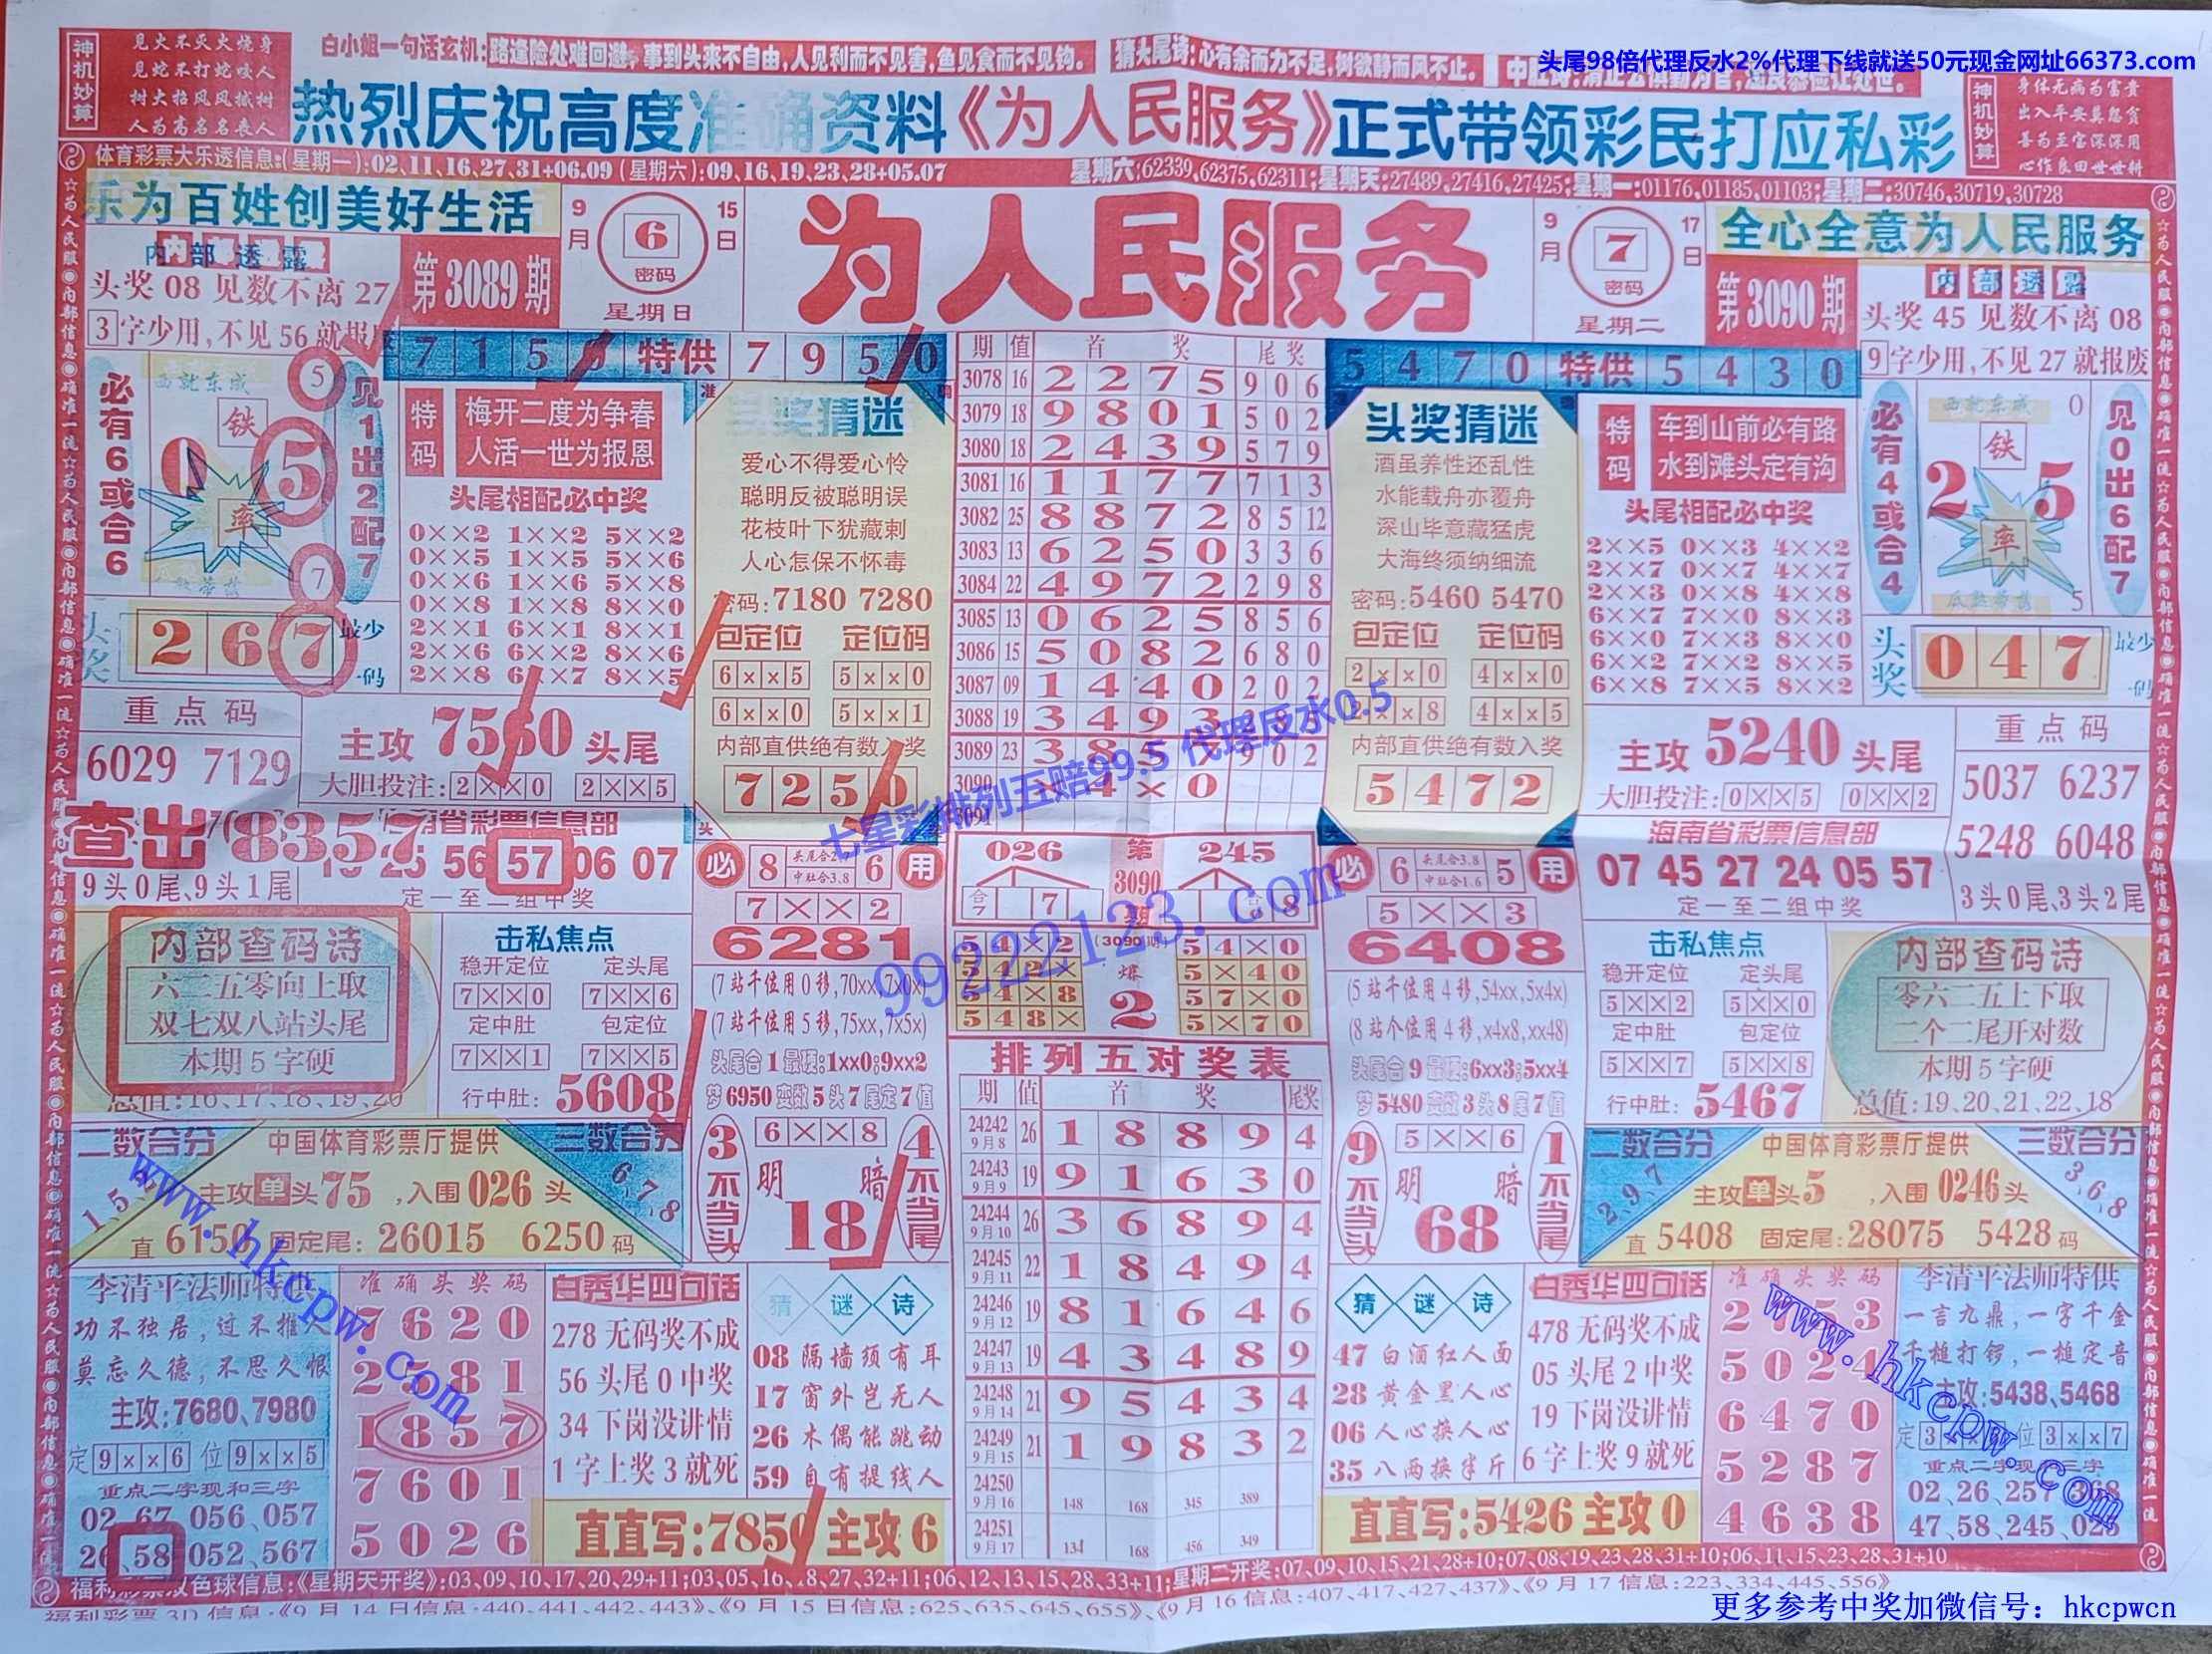 头尾98倍代理反水2%代理下线就送50元现金网址66373.com
神机妙算
见火不灭火烧身
见蛇不打蛇咬人
树大招风风撼树
人为高名名丧人
白小姐一句话玄机:路逢险处难回避,事到头来不自由,人见利而不见害,鱼见食而不见钩。
猜头尾诗:心有余而力不足,树欲静而风不止。
神机妙算
身体无病为富贵
出入平安莫怨贫
善为至宝深深用
心作良田世世耕
热烈庆祝高度准确资料《为人民服务》正式带领彩民打应私彩
体育彩票大乐透信息:(星期一):02、11、16、27、31+06.09(星期六):09、16、19、23、28+05.07
星期六:62339,62375,62311;星期天:27489,27416,27425;星期一:01176,01185,01103;星期二:30746,30719,30728
乐为百姓创美好生活
9月
6
密码
15日
星期日
为人民服务
9月
7
密码
17日
星期二
全心全意为人民服务
内部透露
头奖08见数不离27
3字少用,不见56就报
第3089期
第3090期
内部透露
头奖45见数不离08
9字少用,不见27就报废
特供 7 9 5 0
5 4 7 0 特供 5 4 3 0
必有6或合6
西就东成
铁
0 5
率
5
7
见1出2配7
头奖
2 6 7
最少一码
特码
梅开二度为争春
人活一世为报恩
头尾相配必中奖
0××2 1××2 5××2
0××5 1××5 5××6
0××6 1××6 5××8
0××8 1××8 8××0
2××1 6××1 8××1
2××6 6××2 8××6
2××8 6××7 8××5
头奖猜迷
爱心不得爱心怜
聪明反被聪明误
花枝叶下犹藏刺
人心怎保不怀毒
密码:7180 7280
包定位 定位码
6××5 5××0
6××0 5××1
内部直供绝有数入奖
7 2 5 0
期 值 首 奖 尾奖
3078 16 2 2 7 5 9 0 6
3079 18 9 8 0 1 5 0 2
3080 18 2 4 3 9 5 7 9
3081 16 1 1 7 7 7 1 3
3082 25 8 8 7 2 8 5 12
3083 13 6 2 5 0 3 3 6
3084 22 4 9 7 2 2 9 8
3085 13 0 6 2 5 8 5 6
3086 15 5 0 8 2 6 8 0
3087 09 1 4 4 0 2 0 2
3088 19 3 4 9 3
3089 23 3 8 5 9 0 2
3090 × 4 × 0
3091
头奖猜迷
酒虽养性还乱性
水能载舟亦覆舟
深山毕意藏猛虎
大海终须纳细流
密码:5460 5470
包定位 定位码
2××0 4××0
××8 4××5
内部直供绝有数入奖
5 4 7 2
特码
车到山前必有路
水到滩头定有沟
头尾相配必中奖
2××5 0××3 4××2
2××7 0××7 4××7
2××3 0××8 4××8
6××7 7××0 8××3
6××0 7××3 8××0
6××2 7××2 8××5
6××8 7××5 8××2
必有4或合4
西就东成
0
铁
2 5
率
5
瓜熟蒂落
见0出6配7
头奖
0 4 7
最少一码
重点码
6029 7129
主攻 7560 头尾
大胆投注:2××0 2××5
主攻 5240 头尾
大胆投注:0××5 0××2
重点码
5037 6237
5248 6048
3头0尾、3头2尾
查出8357
省彩票信息部
25 56 57 06 07
9头0尾、9头1尾
定一至二组中奖
海南省彩票信息部
07 45 27 24 05 57
定一至二组中奖
七星彩排列五赔99.5 代理反水0.5
99222123.com
必 8 头尾合2.7 中肚合3.8 6 用
7××2
6281
(7站千位用0移,70xx,7x0x)
(7站千位用5移,75xx,7x5x)
头尾合1最硬:1xx0;9xx2
梦6950变数5头7尾定7值
026 第3090期 245
合7 7
合6 8
5 4 × 2 (3090期) 5 4 × 0
5 4 2 × 爆 5 × 4 0
5 4 × 8 2 5 7 × 0
5 4 8 × 5 × 7 0
必 6 头尾合3.8 中肚合1.6 5 用
5××3
6408
(5站千位用4移,54xx,5x4x)
(8站个位用4移,x4x8,xx48)
头尾合9最硬:6xx3;5xx4
梦5480变数3头8尾7值
内部查码诗
六二五零向上取
双七双八站头尾
本期5字硬
总值:16、17、18、19、20
击私焦点
稳开定位 定头尾
7××0 7××6
定中肚 包定位
7××1 7××5
行中肚: 5608
击私焦点
稳开定位 定头尾
5××2 5××0
定中肚 包定位
5××7 5××8
行中肚: 5467
内部查码诗
零六二五上下取
二个二尾开对数
本期5字硬
总值:19、20、21、22、18
二数合分
中国体育彩票厅提供
三数合分
主攻单头75,入围026头
6、7、8
直 6150 固定尾:26015 6250码
3不当头
6××8
明 暗
18
4不当尾
排列五对奖表
期 值 首 奖 尾奖
24242 9月8 26 1 8 8 9 4
24243 9月9 19 9 1 6 3 0
24244 9月10 26 3 6 8 9 4
24245 9月11 22 1 8 4 9 4
24246 9月12 19 8 1 6 4 6
24247 9月13 19 4 3 4 8 9
24248 9月14 21 9 5 4 3 4
24249 9月15 21 1 9 8 3 2
24250 9月16 148 168 345 389
24251 9月17 134 168 456 349
9不当头
5××6
明 暗
68
1不当尾
二数合分
中国体育彩票厅提供
三数合分
2、9、7
主攻单头5,入围0246头
3、6、8
直 5408 固定尾:28075 5428码
www.hkcpw.com
李清平法师特供
功不独居,过不推人
莫忘久德,不思久恨
主攻:7680、7980
定9××6 位9××5
重点二字现和三字
02、67、056、057
26、58、052、567
准确头奖码
7 6 2 0
2 5 8 1
1 8 5 7
7 6 0 1
5 0 2 6
白秀华四句话
278无码奖不成
56头尾0中奖
34下岗没讲情
1字上奖3就死
猜谜诗
08隔墙须有耳
17窗外岂无人
26木偶能跳动
59自有提线人
直直写:7850 主攻6
猜谜诗
47白酒红人面
28黄金黑人心
06人心换人心
35八两换半斤
白秀华四句话
478无码奖不成
05头尾2中奖
19下岗没讲情
6字上奖9就死
直直写:5426 主攻0
准确头奖码
2 5 3
5 0 2 4
6 4 7 0
5 2 8 7
4 6 3 8
www.hkcpw.com
李清平法师特供
一言九鼎,一字千金
千槌打锣,一槌定音
主攻:5438、5468
位3××7
重点二字现和三字
02、26、257、368
47、58、245、025
福利彩票双色球信息:《星期天开奖》:03、09、10、17、20、29+11;03、05、16、18、27、32+11;06、12、13、15、28、33+11;星期二开奖:07、09、10、15、21、28+10;07、08、19、23、28、31+10;06、11、15、23、28、31+10
福利彩票3D信息:《9月14日信息:440、441、442、443》、《9月15日信息:625、635、645、655》、《9月16信息:407、417、427、437》、《9月17信息:223、334、445、556》
更多参考中奖加微信号: hkcpwcn